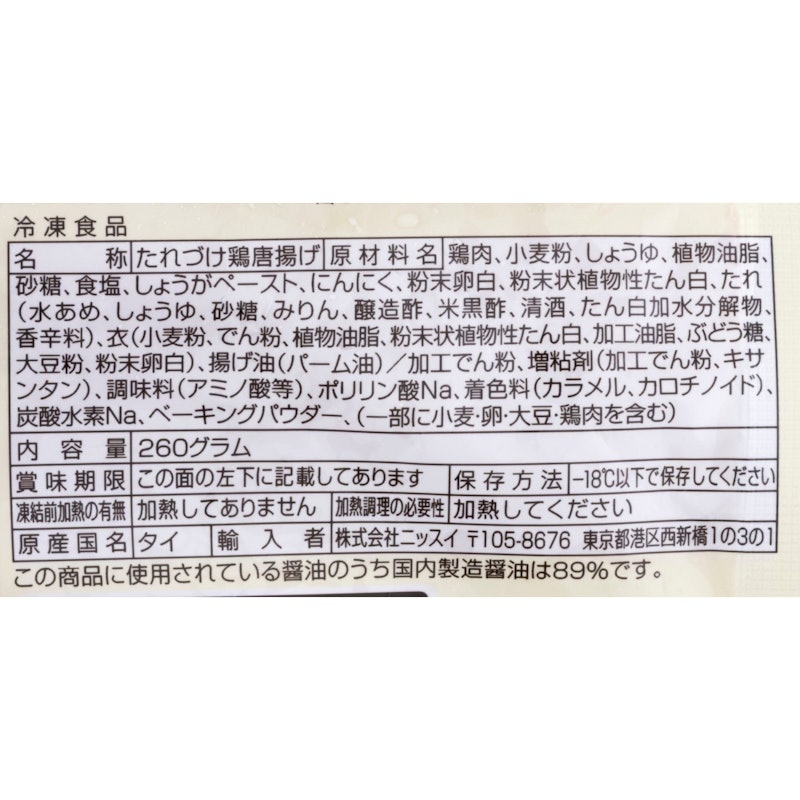 冷凍食品
名称 たれづけ鶏唐揚げ 原材料名 鶏肉、小麦粉、しょうゆ、植物油脂、
砂糖、食塩、しょうがペースト、にんにく、粉末卵白、粉末状植物性たん白、たれ
(水あめ、しょうゆ、砂糖、みりん、醸造酢、米黒酢、清酒、たん白加水分解物、
香辛料)、衣(小麦粉、でん粉、植物油脂、粉末状植物性たん白、加工油脂、ぶどう糖、
大豆粉、粉末卵白)、揚げ油(パーム油)/加工でん粉、増粘剤(加工でん粉、キサ
ンタン)、調味料(アミノ酸等)、ポリリン酸Na、着色料(カラメル、カロチノイド)、
炭酸水素Na、ベーキングパウダー、(一部に小麦・卵・大豆・鶏肉を含む)
内容量 260グラム
賞味期限 この面の左下に記載してあります 保存方法 -18℃以下で保存してください
凍結前加熱の有無 加熱してありません 加熱調理の必要性 加熱してください
原産国名 タイ 輸入者 株式会社ニッスイ 〒105-8676 東京都港区西新橋1の3の1
この商品に使用されている醤油のうち国内製造醤油は89%です。